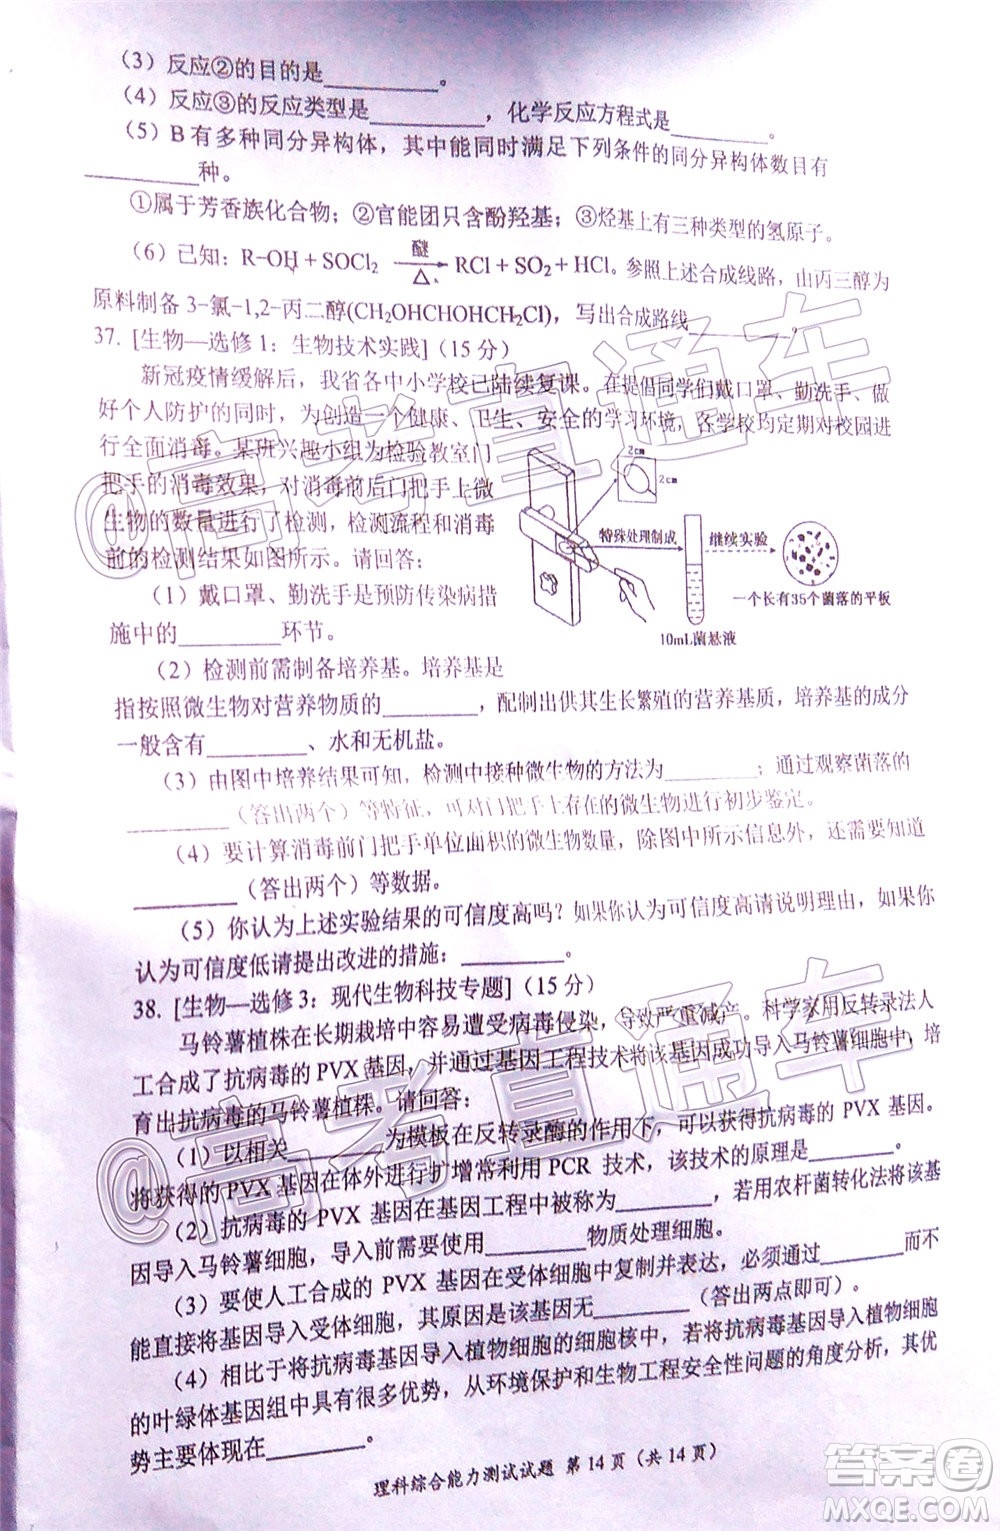 （3）反应②的目的是__________。
（4）反应③的反应类型是__________，化学反应方程式是__________。
（5）B 有多种同分异构体，其中能同时满足下列条件的同分异构体数目有
__________种。
①属于芳香族化合物；②官能团只含酚羟基；③烃基上有三种类型的氢原子。
（6）已知：R-OH + SOCl₂ —醚/△→ RCl + SO₂ + HCl。参照上述合成线路，由丙三醇为
原料制备 3-氯-1,2-丙二醇(CH₂OHCHOHCH₂Cl)，写出合成路线__________。
37. [生物—选修 1：生物技术实践]（15 分）
新冠疫情缓解后，我省各中小学校已陆续复课。在提倡同学们戴口罩、勤洗手、做
好个人防护的同时，为创造一个健康、卫生、安全的学习环境，各学校均定期对校园进
行全面消毒。某班兴趣小组为检验教室门
把手的消毒效果，对消毒前后门把手上微
生物的数量进行了检测，检测流程和消毒
前的检测结果如图所示。请回答：
2cm
2cm
特殊处理制成
继续实验
10mL菌悬液
一个长有35个菌落的平板
（1）戴口罩、勤洗手是预防传染病措
施中的__________环节。
（2）检测前需制备培养基。培养基是
指按照微生物对营养物质的__________，配制出供其生长繁殖的营养基质，培养基的成分
一般含有__________、水和无机盐。
（3）由图中培养结果可知，检测中接种微生物的方法为__________；通过观察菌落的
__________（答出两个）等特征，可对门把手上存在的微生物进行初步鉴定。
（4）要计算消毒前门把手单位面积的微生物数量，除图中所示信息外，还需要知道
__________（答出两个）等数据。
（5）你认为上述实验结果的可信度高吗？如果你认为可信度高请说明理由，如果你
认为可信度低请提出改进的措施：__________。
38. [生物—选修 3：现代生物科技专题]（15 分）
马铃薯植株在长期栽培中容易遭受病毒侵染，导致严重减产。科学家用反转录法人
工合成了抗病毒的 PVX 基因，并通过基因工程技术将该基因成功导入马铃薯细胞中，培
育出抗病毒的马铃薯植株。请回答：
（1）以相关__________为模板在反转录酶的作用下，可以获得抗病毒的 PVX 基因。
将获得的 PVX 基因在体外进行扩增常利用 PCR 技术，该技术的原理是__________。
（2）抗病毒的 PVX 基因在基因工程中被称为__________，若用农杆菌转化法将该基
因导入马铃薯细胞，导入前需要使用__________物质处理细胞。
（3）要使人工合成的 PVX 基因在受体细胞中复制并表达，必须通过__________而不
能直接将基因导入受体细胞，其原因是该基因无__________（答出两点即可）。
（4）相比于将抗病毒基因导入植物细胞的细胞核中，将抗病毒基因导入植物细胞
的叶绿体基因组中具有很多优势，从环境保护和生物工程安全性问题的角度分析，其优
势主要体现在__________。
理科综合能力测试试题 第 14 页（共 14 页）
@高考直通车
@高考直通车
答案圈
MXQE.COM